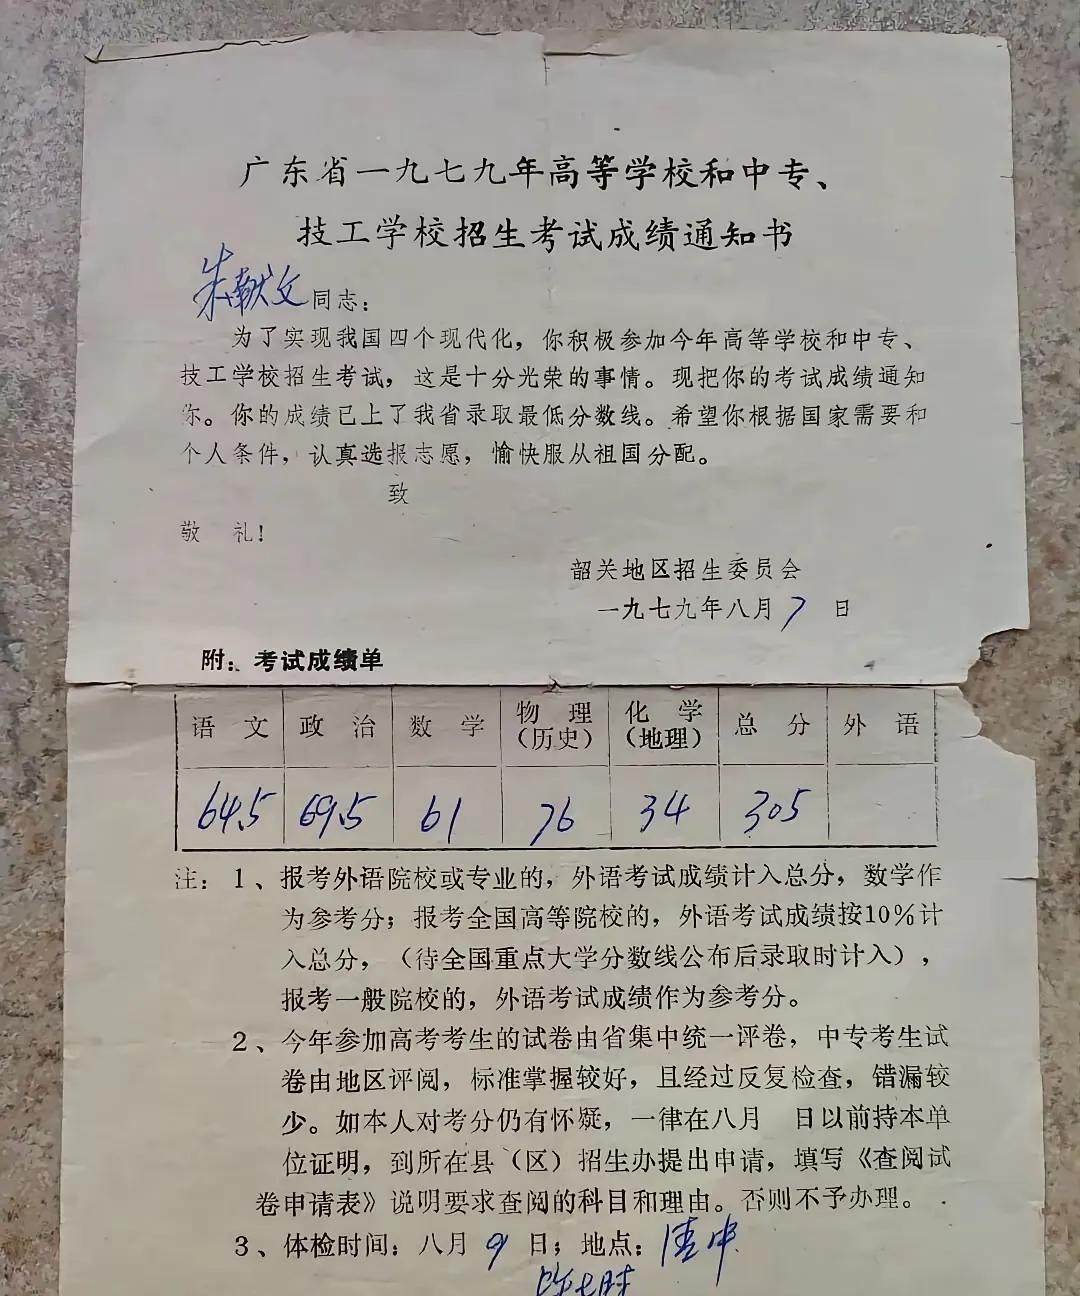 广东省一九七九年高等学校和中专、
技工学校招生考试成绩通知书
朱献文同志：
为了实现我国四个现代化，你积极参加今年高等学校和中专、
技工学校招生考试，这是十分光荣的事情。现把你的考试成绩通知
你。你的成绩已上了我省录取最低分数线。希望你根据国家需要和
个人条件，认真选报志愿，愉快服从祖国分配。
致
敬 礼！
韶关地区招生委员会
一九七九年八月7日
附：考试成绩单
语文 政治 数学 物理（历史） 化学（地理） 总分 外语
64.5 69.5 61 76 34 305
注：1、报考外语院校或专业的，外语考试成绩计入总分，数学作
为参考分；报考全国高等院校的，外语考试成绩按10%计
入总分，（待全国重点大学分数线公布后录取时计入），
报考一般院校的，外语考试成绩作为参考分。
2、今年参加高考考生的试卷由省集中统一评卷，中专考生试
卷由地区评阅，标准掌握较好，且经过反复检查，错漏较
少。如本人对考分仍有怀疑，一律在八月 日以前持本单
位证明，到所在县（区）招生办提出申请，填写《查阅试
卷申请表》说明要求查阅的科目和理由。否则不予办理。
3、体检时间：八月9日；地点：清中